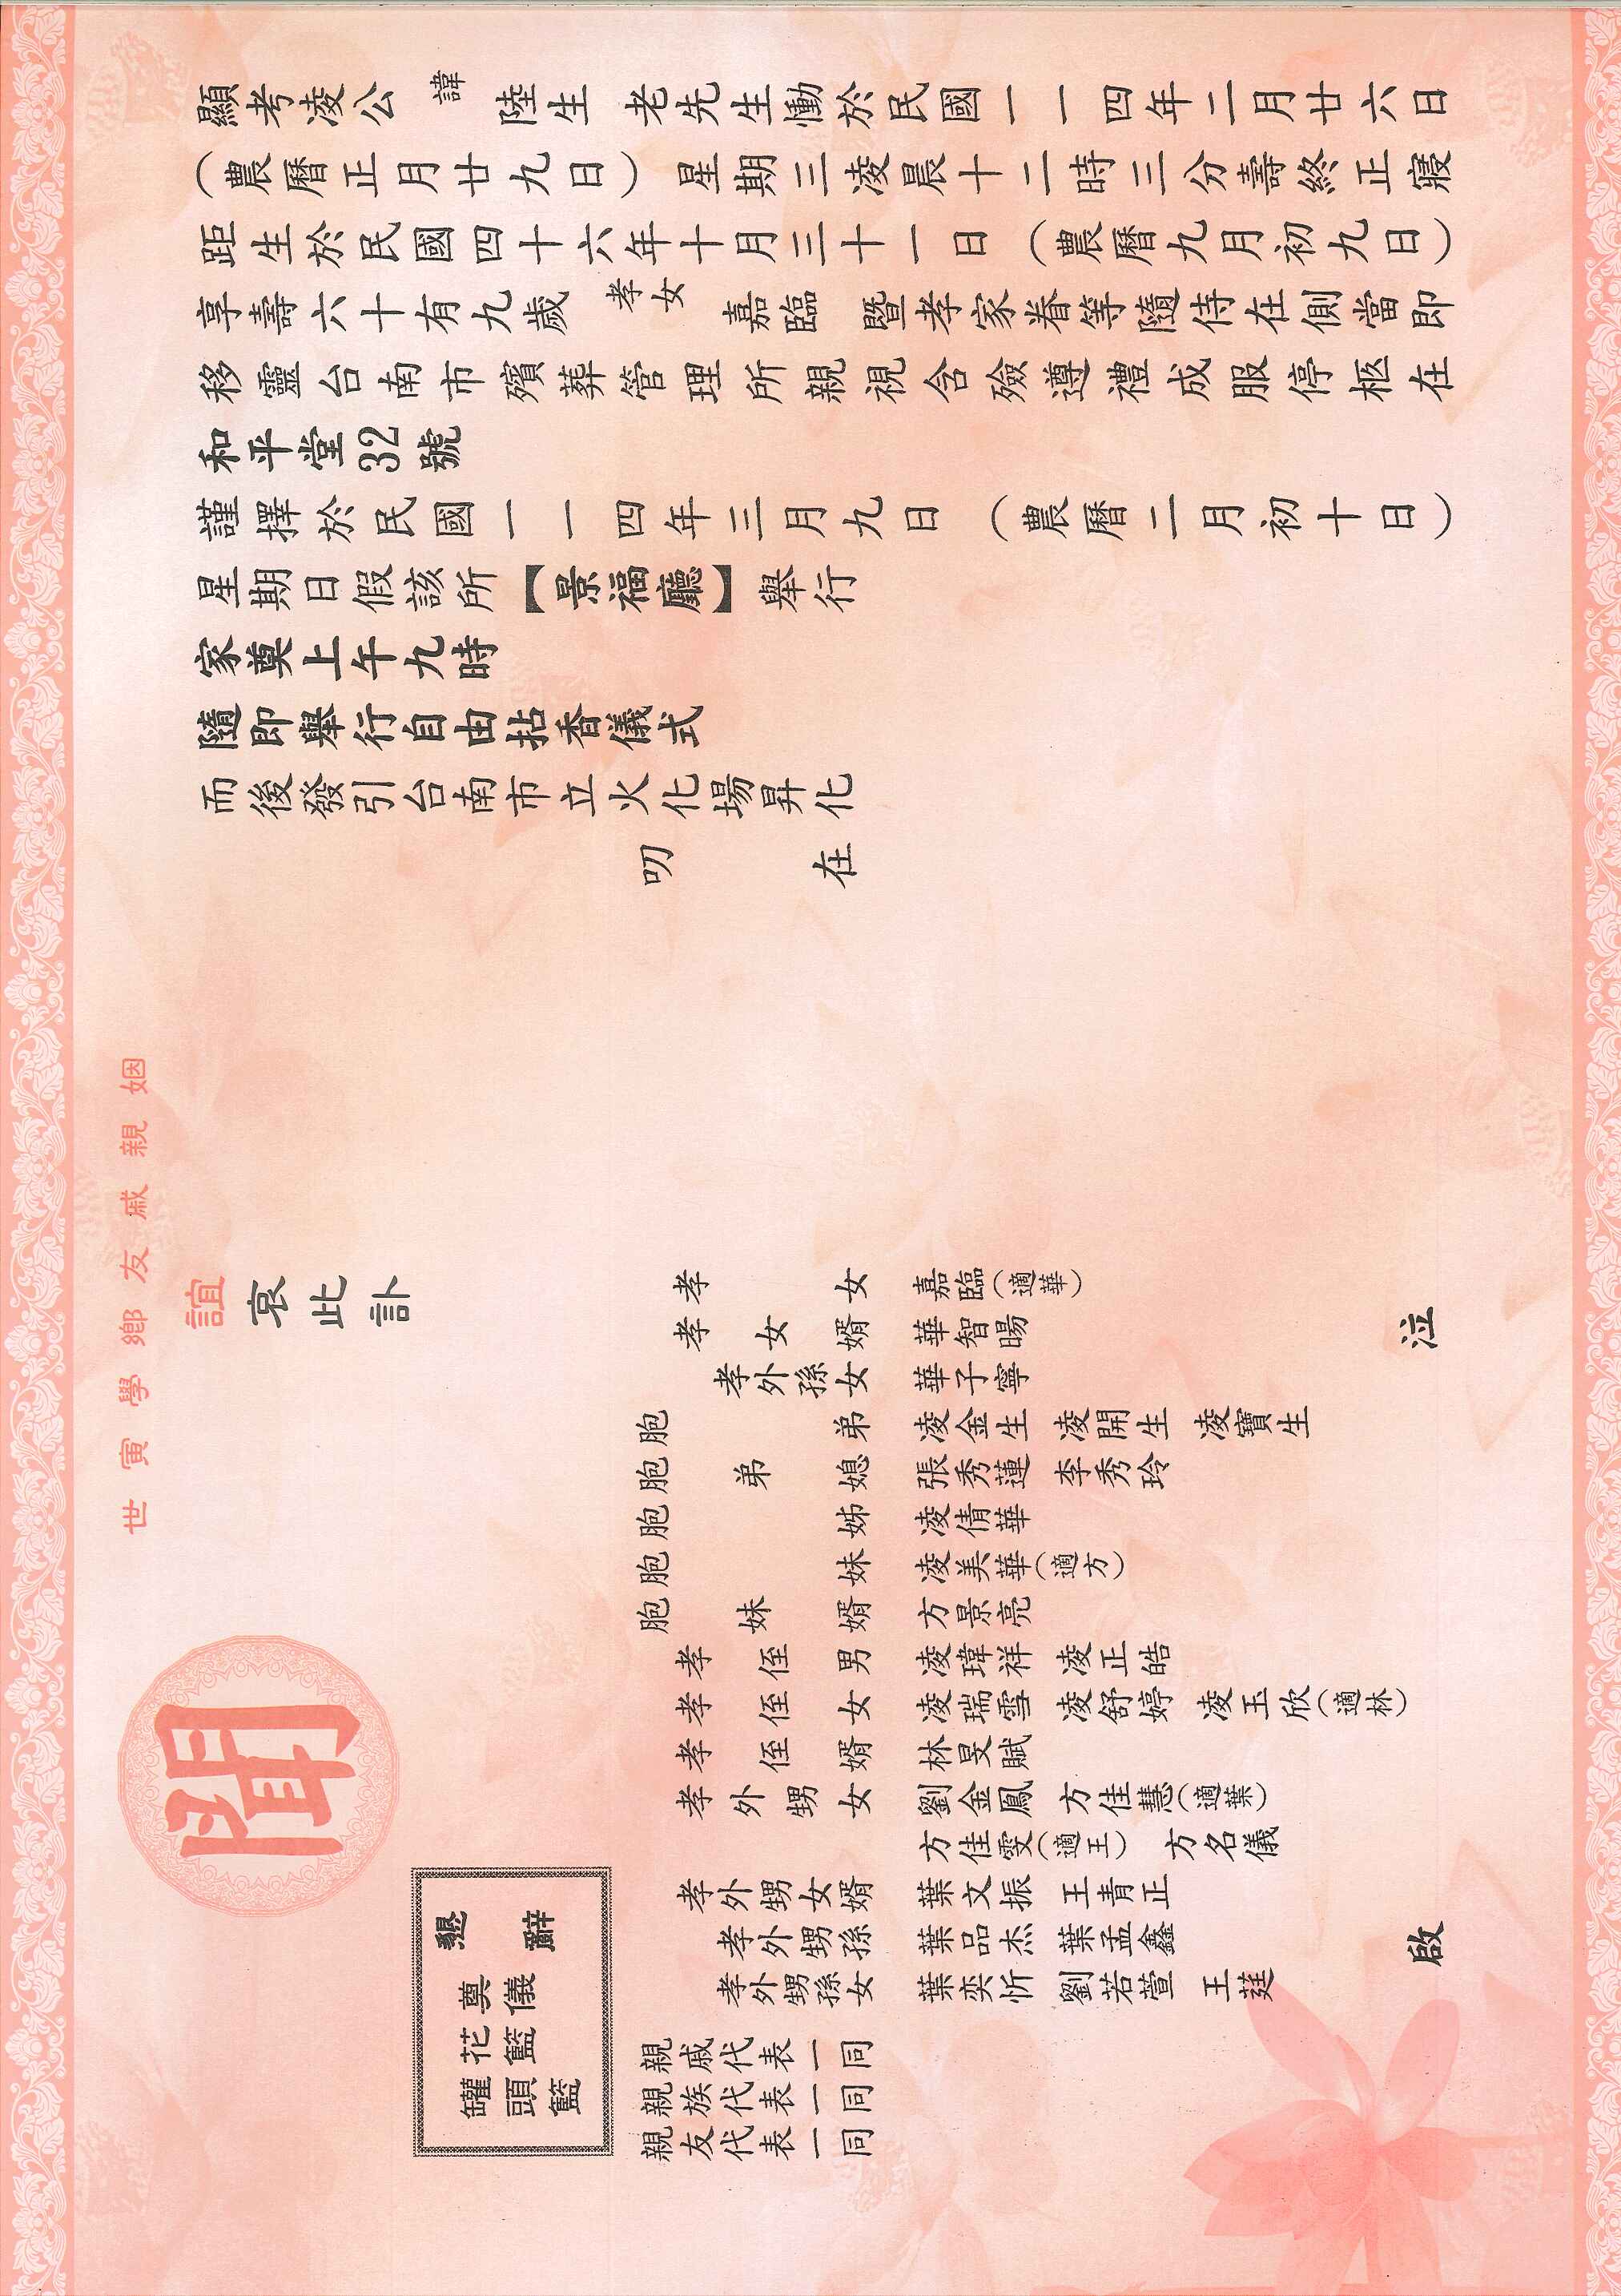 顯考凌公諱陸生老先生慟於民國一一四年二月廿六日
（農曆正月廿九日）星期三凌晨十二時三分壽終正寢
距生於民國四十六年十月三十一日（農曆九月初九日）
享壽六十有九歲孝女嘉臨暨孝家眷等隨侍在側當即
移靈台南市殯葬管理所親視含殮遵禮成服停柩在
和平堂32號
謹擇於民國一一四年三月九日（農曆二月初十日）
星期日假該所【景福廳】舉行
家奠上午九時
隨即舉行自由拈香儀式
而後發引台南市立火化場昇化
叨在
世寅學鄉友戚親姻
誼
哀此訃
聞
懇辭
奠儀
花籃
罐頭籃
孝女 嘉臨（適華）
孝女婿 華智暘
孝外孫女 華子寧
胞弟 凌金生 凌開生 凌寶生
胞弟媳 張秀蓮 李秀玲
胞姊 凌倩華
胞妹 凌美華（適方）
胞妹婿 方景亮
孝侄男 凌瑋祥 凌正皓
孝侄女 凌瑞雪 凌舒婷 凌玉欣（適林）
孝侄婿 林旻賦
孝外甥女 劉金鳳 方佳慧（適葉）
方佳雯（適王） 方名儀
孝外甥女婿 葉文振 王青正
孝外甥孫 葉品杰 葉孟鑫
孝外甥孫女 葉奕忻 劉若萱 王莛
親戚代表一同
親族代表一同
親友代表一同
泣啟